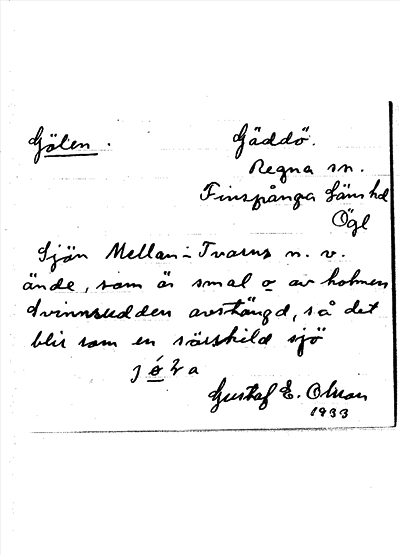 Gölen. Gäddö.
Regna sn.
Finspånga läns hd
Ögl
Sjön Mellan-Tvarns n. v.
ände, som är smal o av holmen
Kvinnsudden avstängd, så det
blir som en särskild sjö
Gustaf E. Olsson
1933